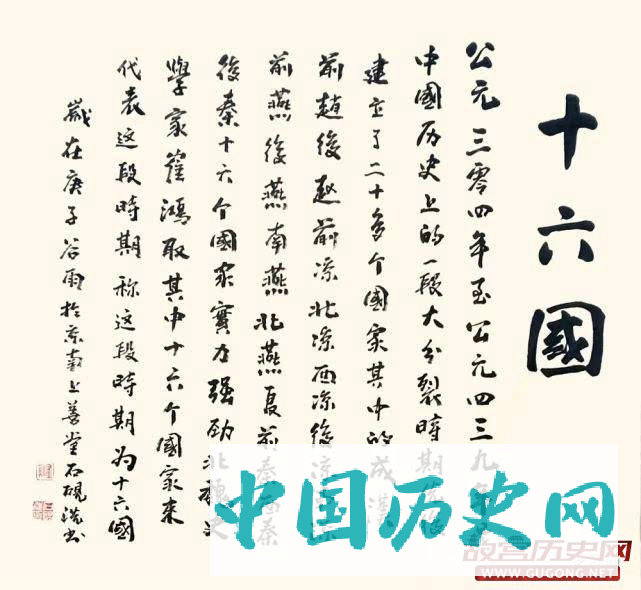 十六國
公元三零四年至公元四三九年
中國历史上的一段大分裂時期
建立了二十多个國家其中的成漢
前趙後赵前凉北凉西凉後凉
前燕後燕南燕北燕夏前秦西秦
後秦十六个國家實力强劲北魏史
學家崔鴻取其中十六个國家来
代表这段時期称这段時期为十六國
歲在庚子谷雨於京南上善堂石砚洪书
中国历史网
故宫历史网
WWW.GUGONG.NET